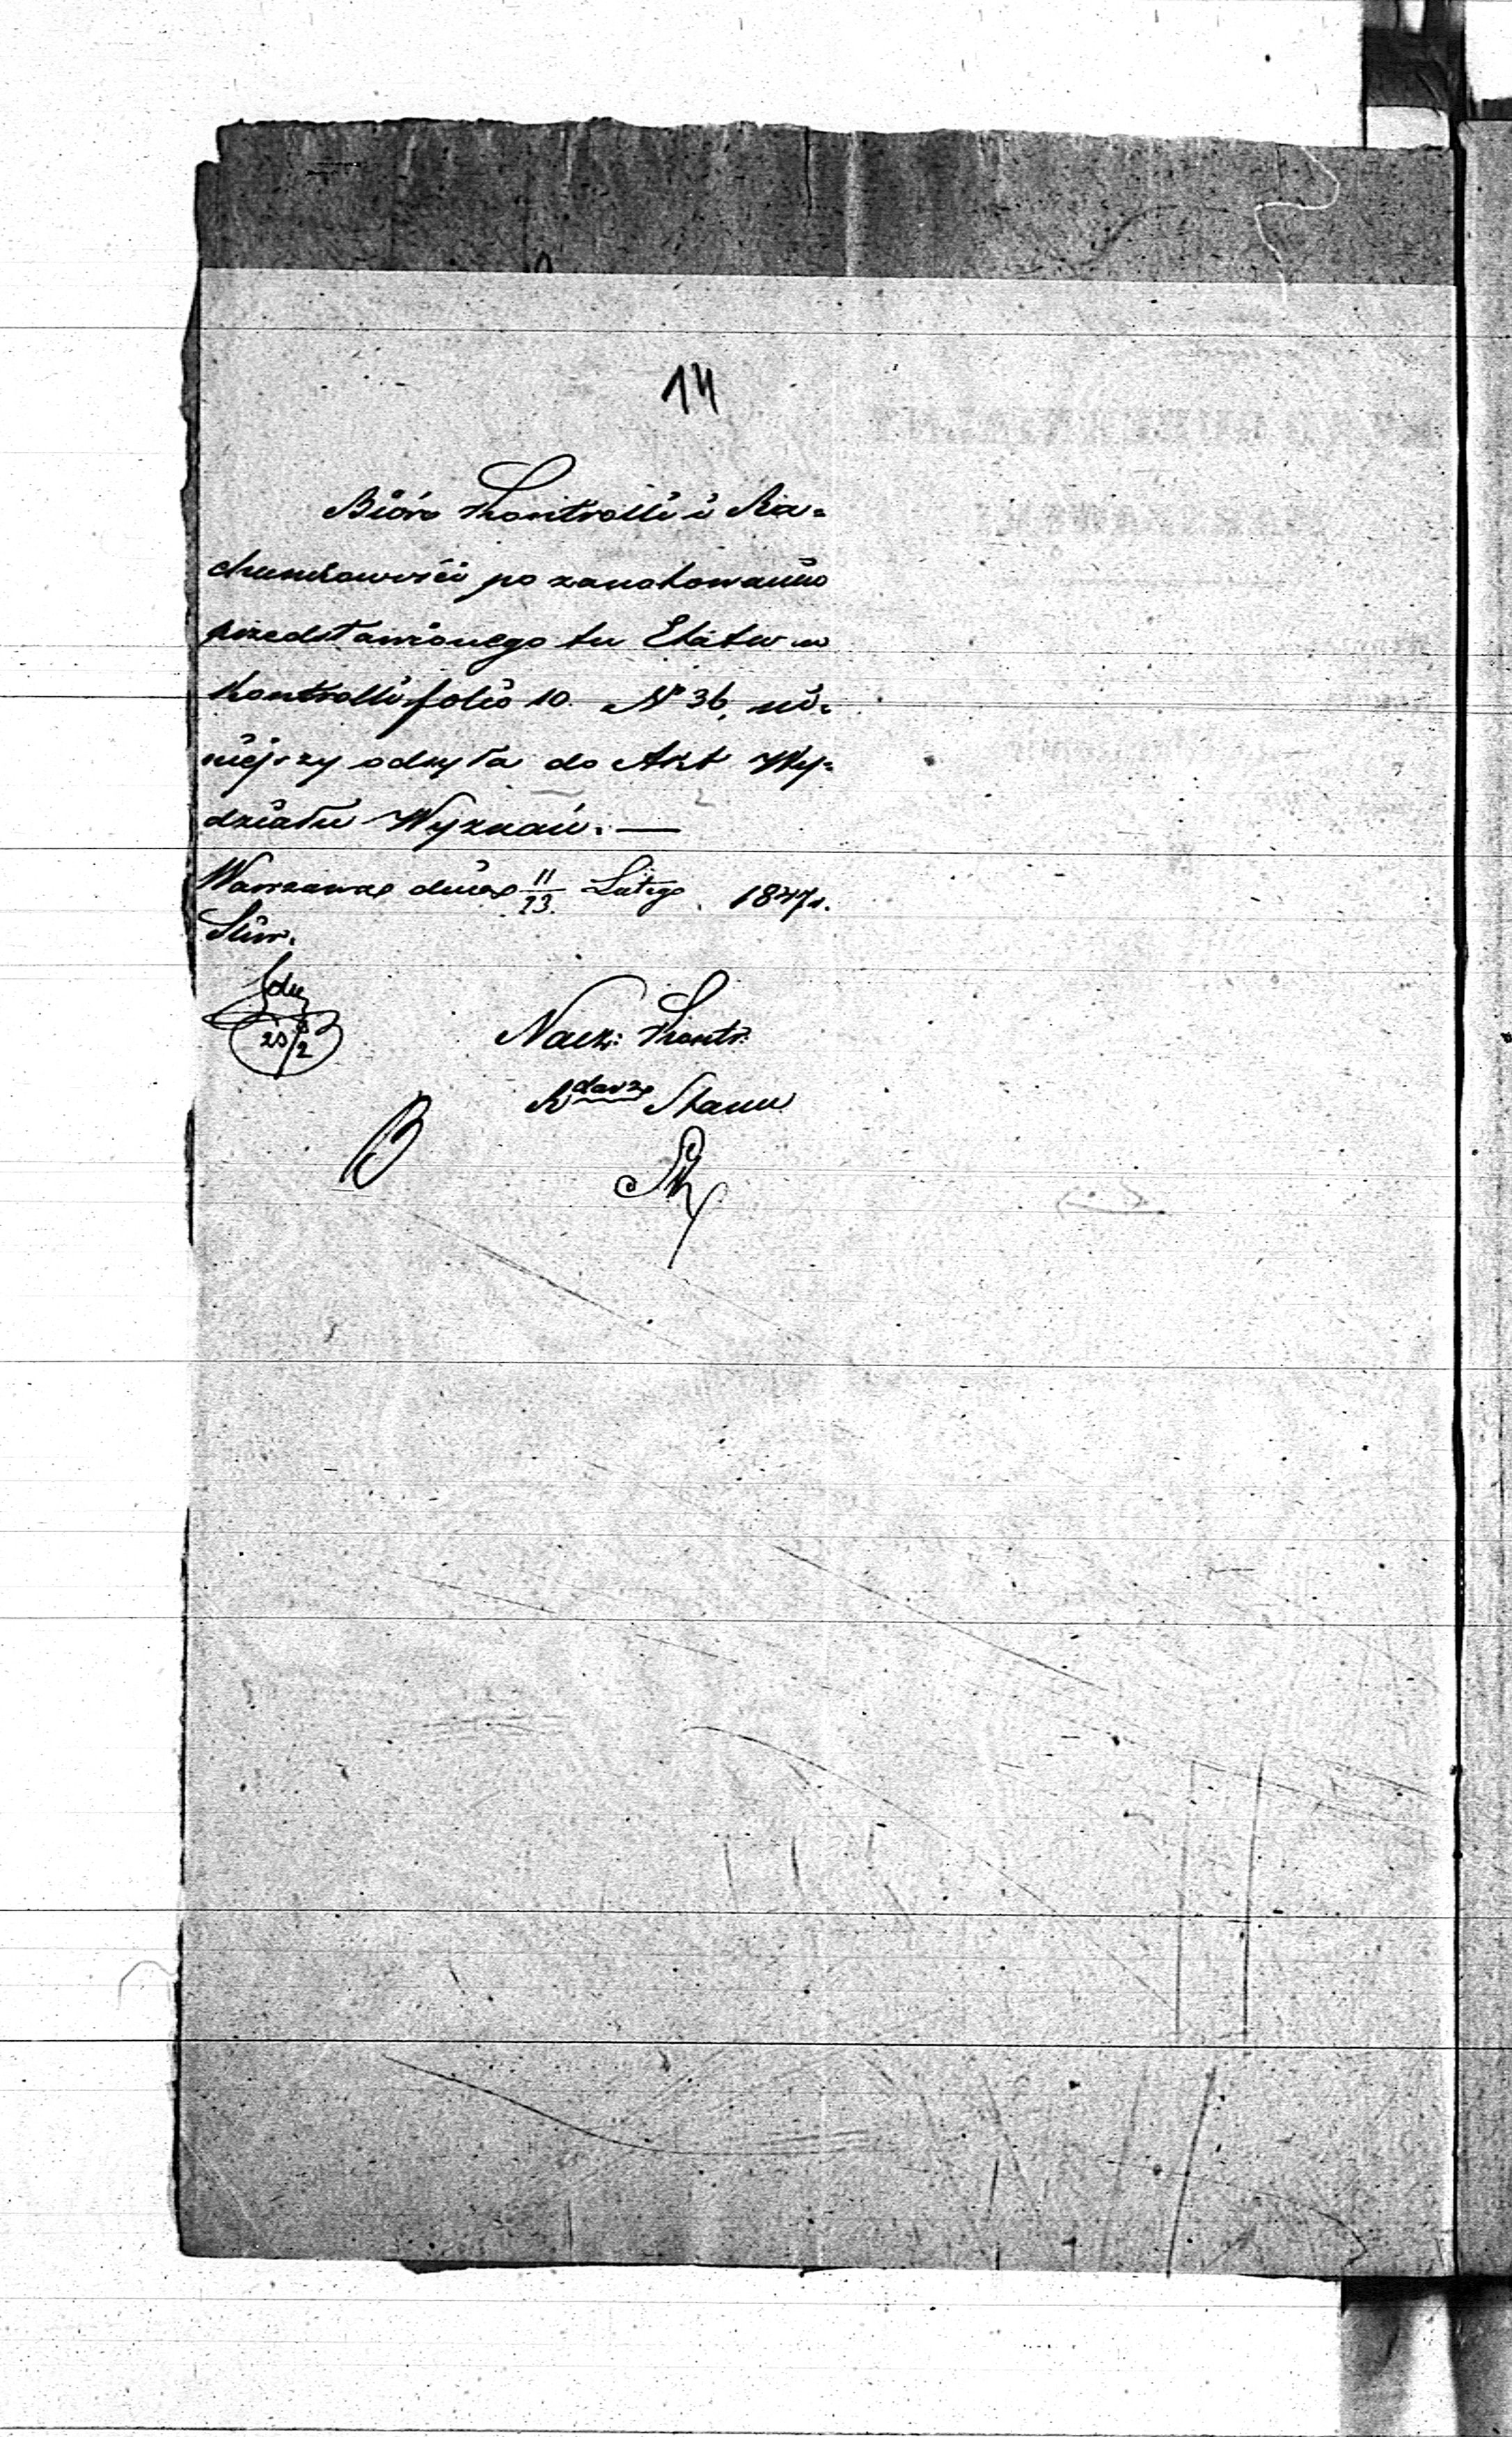 14
Bióro Kontrolli i Ra=
chunkowości po zanotowaniu
przedstawionego tu Etatu w
Kontrolli folio 10. N° 36, ni=
niejszy odsyła do Akt Wy=
działu Wyznań. —
Warszawa dnia 11/23. Lutego 1847 r.
Nacz: Kontr:
Rdarz Stanu